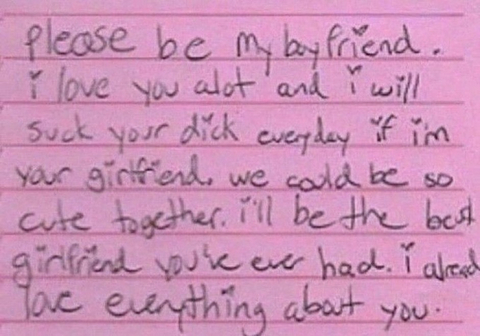 please be my boyfriend.
i love you alot and i will
suck your dick everyday if i'm
your girlfriend. we could be so
cute together. i'll be the best
girlfriend you've ever had. i
love everything about you.